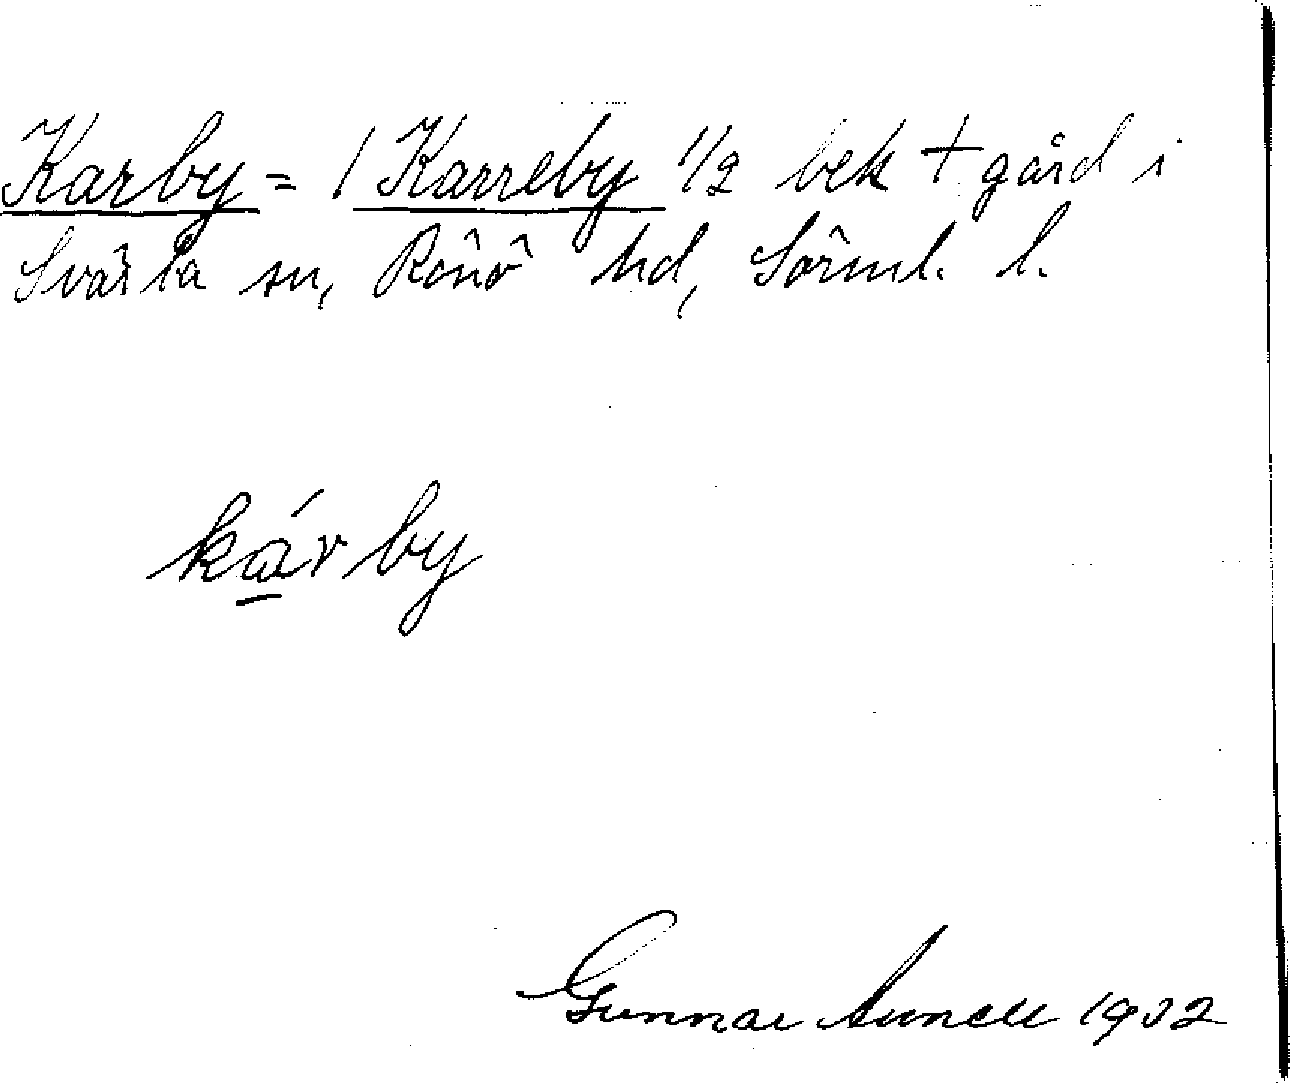 Karby = 1 Karreby 1/2 bek + gård i
Svärta sn, Rönö hd, Sörml. l.
kárby
Gunnar 1902